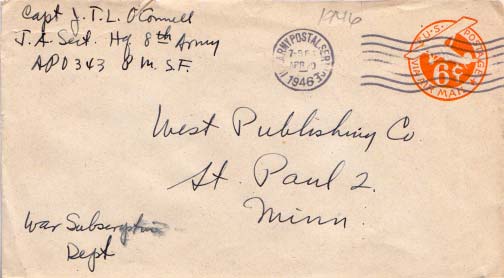 Capt J. T. L. O'Connell
J. A. Sect. Hq 8th Army
APO 343 P.M. S.F.
1946
U.S. ARMY POSTAL SERVICE
APR
1946
U.S. POSTAGE
6¢
VIA AIR MAIL
West Publishing Co.
St. Paul 2.
Minn.
War Subscription
Dept